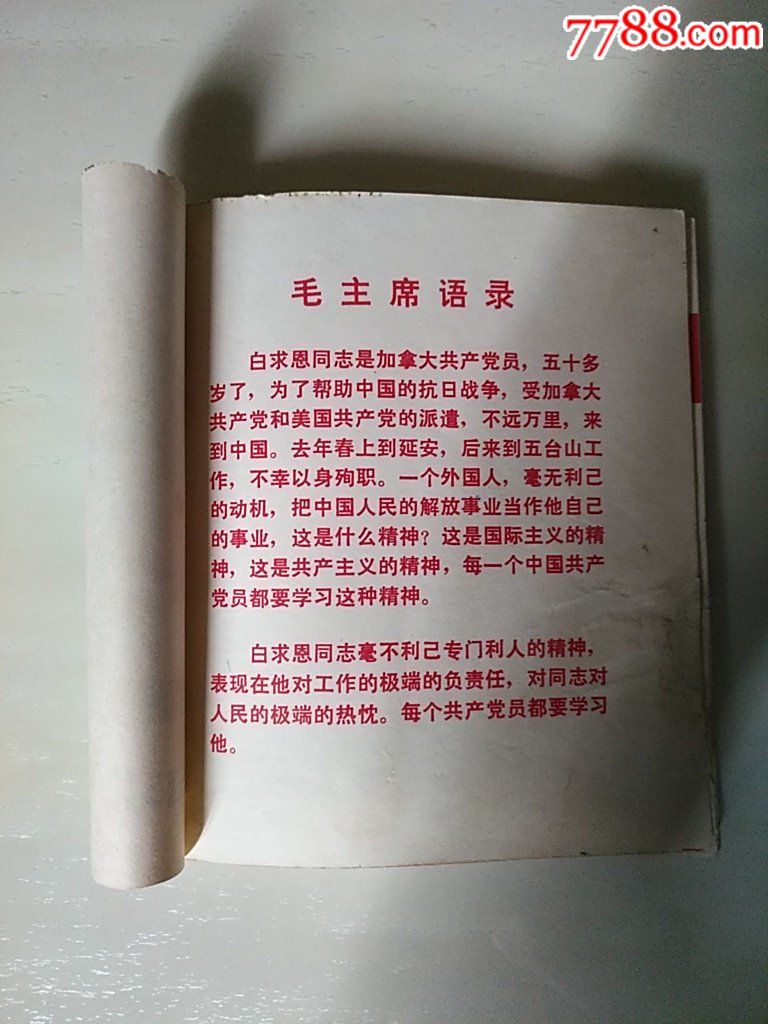 7788.com
毛主席语录
白求恩同志是加拿大共产党员，五十多
岁了，为了帮助中国的抗日战争，受加拿大
共产党和美国共产党的派遣，不远万里，来
到中国。去年春上到延安，后来到五台山工
作，不幸以身殉职。一个外国人，毫无利己
的动机，把中国人民的解放事业当作他自己
的事业，这是什么精神？这是国际主义的精
神，这是共产主义的精神，每一个中国共产
党员都要学习这种精神。
白求恩同志毫不利己专门利人的精神，
表现在他对工作的极端的负责任，对同志对
人民的极端的热忱。每个共产党员都要学习
他。